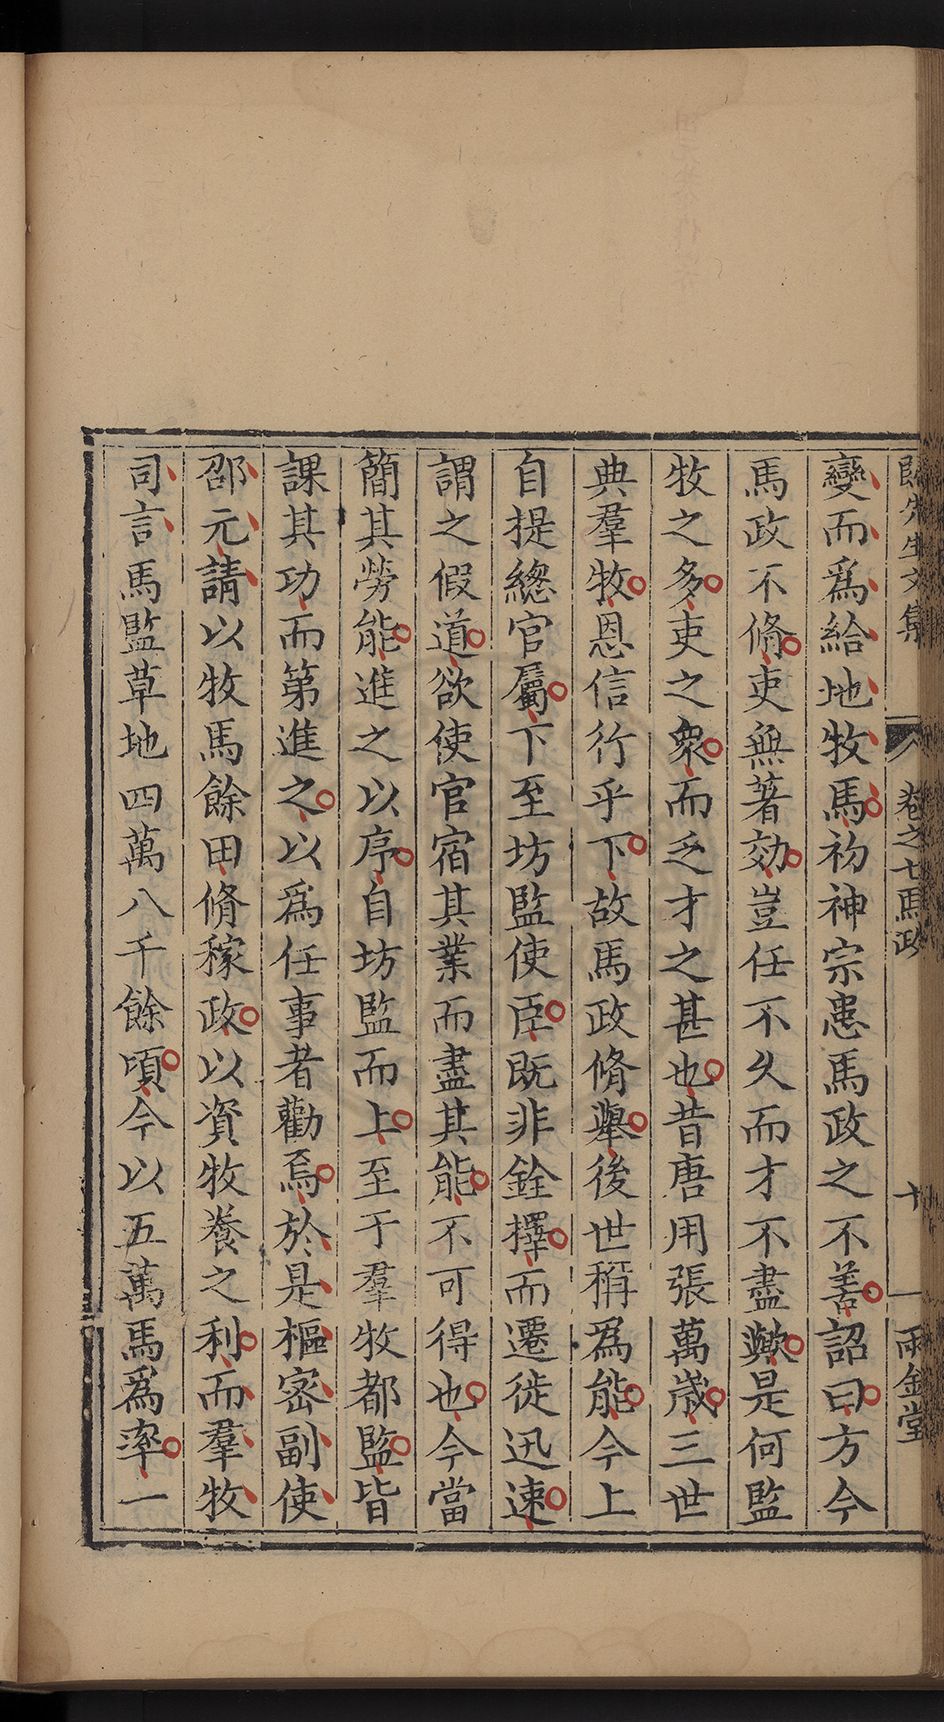 歸先生文集 卷之七馬政 十 雨金堂
變而爲給地牧馬初神宗患馬政之不善詔曰方今
馬政不脩吏無著効豈任不久而才不盡歟是何監
牧之多吏之衆而乏才之甚也昔唐用張萬歲三世
典羣牧恩信行乎下故馬政脩舉後世稱爲能今上
自提總官屬下至坊監使臣既非銓擇而遷徙迅速
謂之假道欲使官宿其業而盡其能不可得也今當
簡其勞能進之以序自坊監而上至于羣牧都監皆
課其功而第進之以爲任事者勸焉於是樞密副使
邵元請以牧馬餘田脩稼政以資牧養之利而羣牧
司言馬監草地四萬八千餘頃今以五萬馬爲率一